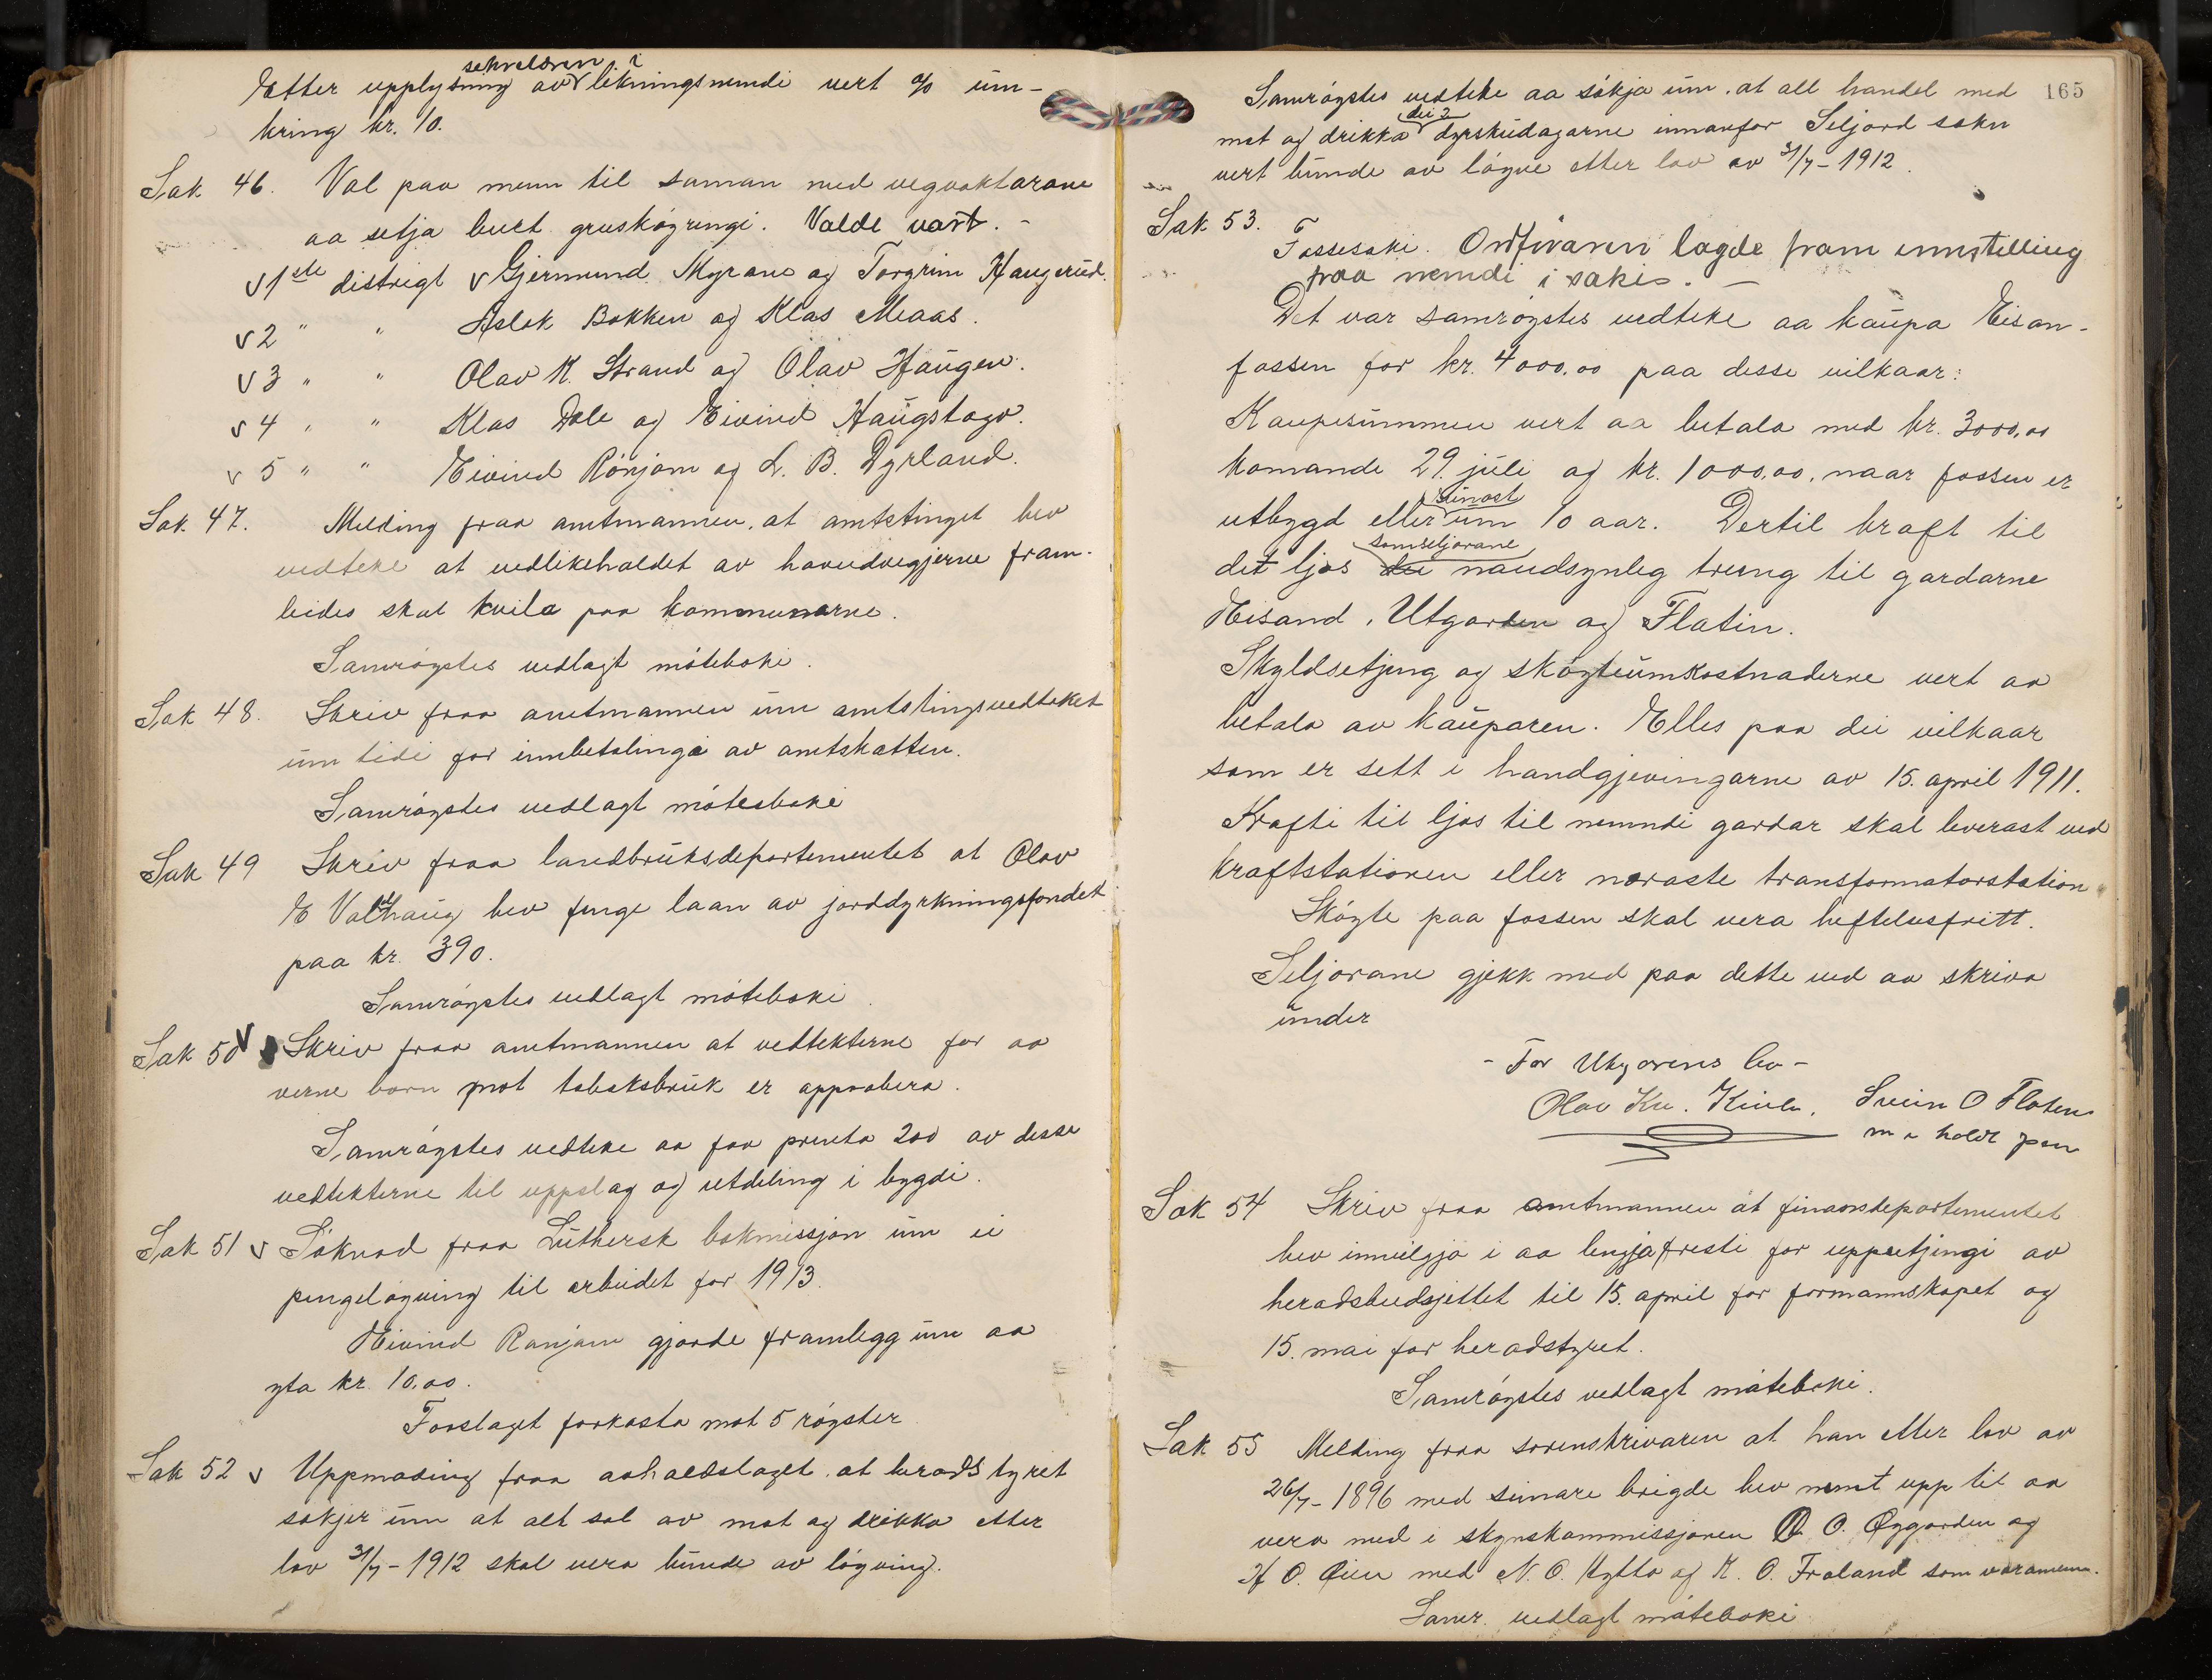 Etter upplysning av sekretæren i likningsnemndi vert % um-
kring kr. 10.
Sak 46. Val paa menn til saman med vegvaktarane
aa setja burt gruskøyringi. Valde vart. -
V 1ste distrigt V Gjermund Myrane og Torgrim Haugerud.
V 2 " " Aslak Bakken og Klas Meaas.
V 3 " " Olav K. Strand og Olav Haugen.
V 4 " " Klas Dale og Eivind Haugstago.
V 5 " " Eivind Rønjom og L. B. Dyrland.
Sak 47. Melding fraa amtmannen, at amtstinget hev
vedteke at vedlikehaldet av hovudvegjerne fram-
leides skal kvila paa kommunarne.
Samrøystes vedlagt møteboki.
Sak 48. Skriv fraa amtmannen um amtstingsvedtaket
um tidi for innbetalingi av amtskatten.
Samrøystes vedlagt møtesboki
Sak 49 Skriv fraa landbruksdepartementet at Olav
E Valhaug hev fenge laan av jorddyrkningsfondet
paa kr. 390.
Samrøystes vedlagt møteboki.
Sak 50 V Skriv fraa amtmannen at vedtekterne for aa
verne born mot tobaksbruk er approbera.
Samrøystes vedteke aa faa prenta 200 av desse
vedtekterne til uppslag og utdeling i bygdi.
Sak 51 V Søknad fraa Luthersk bokmissjon um ei
pengeløyving til arbeidet for 1913.
Eivind Rønjom gjorde framlegg um aa
yta kr. 10,00.
Forslaget forkasta mot 5 røyster
Sak 52 V Uppmoding fraa aahaldslaget at heradstyret
søkjer um at alt sal av mat og drikka etter
lov 31/7-1912 skal vera bunde av løyving.
165
Samrøystes vedteke aa søkja um, at all handel med
mat og drikka dei 2 dyrskudagarne innanfor Seljord sokn
vert bunde av løyve etter lov av 31/7-1912.
Sak 53. Fossesaki. Ordføraren lagde fram innstelling
fraa nemndi i saki. -
Det var samrøystes vedteke aa kaupa Eisan-
fossen for kr. 4000,00 paa desse vilkaar:
Kaupesummen vert aa betala med kr. 3000,00
komande 29. juli og kr. 1000,00, naar fossen er
utbygd eller sinast um 10 aar. Dertil kraft til
det ljos somseljarane dei naudsynleg treng til gardarne
Eisand, Utgarden og Flatin.
Skyldsetjing og skøyteumkostnaderne vert aa
betala av kauparen. Elles paa dei vilkaar
som er sett i handgjevingarne av 15. april 1911.
Krafti til ljos til nemndi gardar skal leverast ved
kraftstationen eller næraste transformatorstation
Skøyte paa fossen skal vera heftelusfritt.
Seljarane gjekk med paa dette ved aa skriva
under
- For Utgarens bu -
Olav Kn. Svein O Flaten
m haldt pen
Sak 54 Skriv fraa amtmannen at finansdepartementet
hev innvilgja i aa lengja fresti for uppsetjingi av
heradsbudsjettet til 15. april for formannskapet og
15. mai for heradstyret.
Samrøystes vedlagt møteboki.
Sak 55 Melding fraa sorenskrivaren at han etter lov av
26/7-1896 med seinare brigde hev nemnt upp til aa
vera med i skynskommissjonen O. O. Øygarden og
H O. Øien med N. O. Hytta og K. O. Froland som varamenn.
Samr. vedlagt møteboki